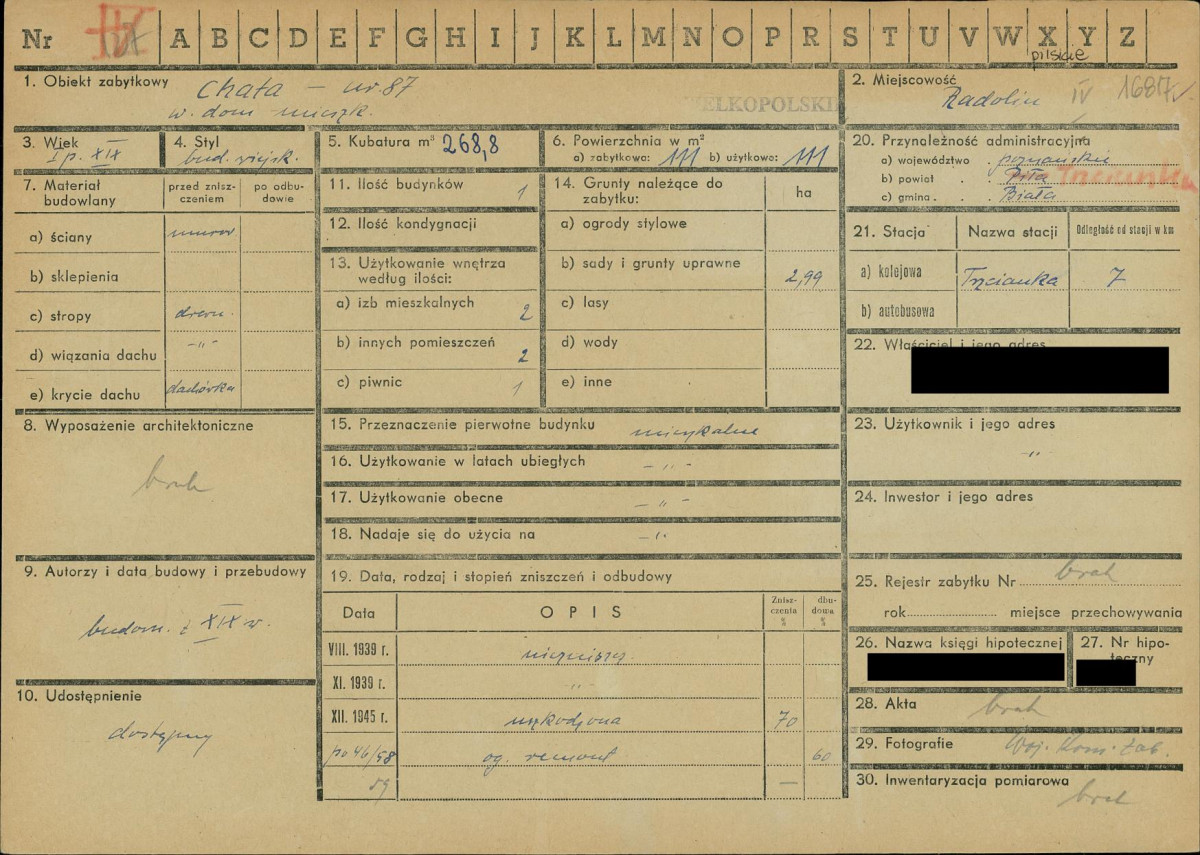 Nr IV A B C D E F G H I J K L M N O P R S T U V W X Y Z
pilskie
1. Obiekt zabytkowy Chata - nr. 87
w. dom mieszk.
ELKOPOLSKI
2. Miejscowość
Radolin IV 1687
3. Wiek
I p. XIX
4. Styl
bud. wiejsk.
5. Kubatura m³ 268,8
6. Powierzchnia w m²
a) zabytkowa: 111 b) użytkowa: 111
7. Materiał budowlany
przed zniszczeniem
po odbudowie
a) ściany murow
b) sklepienia
c) stropy drewn.
d) wiązania dachu -"-
e) krycie dachu dachówka
8. Wyposażenie architektoniczne
brak
9. Autorzy i data budowy i przebudowy
budow. z XIX w.
10. Udostępnienie
dostępny
11. Ilość budynków 1
12. Ilość kondygnacji
13. Użytkowanie wnętrza według ilości:
a) izb mieszkalnych 2
b) innych pomieszczeń 2
c) piwnic 1
14. Grunty należące do zabytku:
ha
a) ogrody stylowe
b) sady i grunty uprawne 2,99
c) lasy
d) wody
e) inne
15. Przeznaczenie pierwotne budynku mieszkalne
16. Użytkowanie w latach ubiegłych -"-
17. Użytkowanie obecne -"-
18. Nadaje się do użycia na -"-
19. Data, rodzaj i stopień zniszczeń i odbudowy
Data OPIS Zniszczenia % dbudowa %
VIII. 1939 r.
XI. 1939 r. -"-
XII. 1945 r. uszkodzona 70
po 46/58 og. remont 60
59 —
20. Przynależność administracyjna
a) województwo poznańskie
b) powiat Piła Trzcianka
c) gmina Biała
21. Stacja Nazwa stacji Odległość od stacji w km
a) kolejowa Trzcianka 7
b) autobusowa
22. Właściciel i jego adres
23. Użytkownik i jego adres
-"-
24. Inwestor i jego adres
25. Rejestr zabytku Nr brak
rok miejsce przechowywania
26. Nazwa księgi hipotecznej
27. Nr hipoteczny
28. Akta brak
29. Fotografie Woj. Kons. Zab.
30. Inwentaryzacja pomiarowa
brak